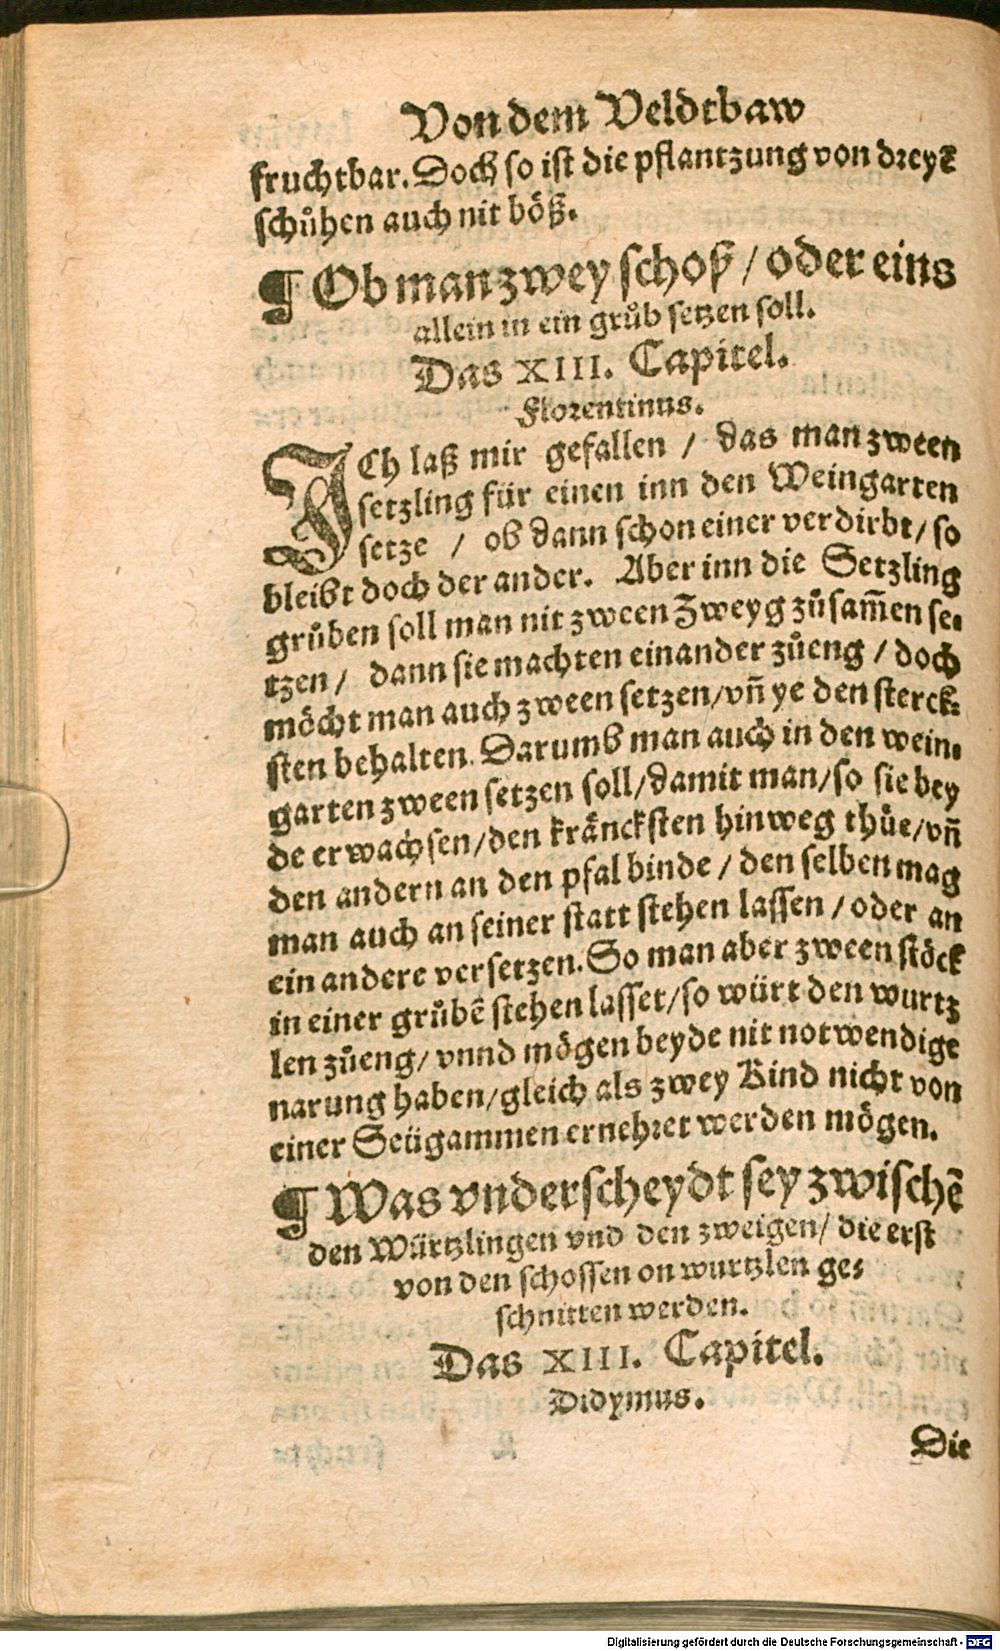 Von dem Veldtbaw
fruchtbar. Doch so ist die pflantzung von dreyẽ
schůhen auch nit böß.
¶ Ob man zwey schoß / oder eins
allein in ein grůb setzen soll.
Das XIII. Capitel.
Florentinus.
ICh laß mir gefallen / das man zween
setzling für einen inn den Weingarten
setze / ob dann schon einer verdirbt / so
bleibt doch der ander. Aber inn die Setzling
grůben soll man nit zween Zweyg zůsam̃en se-
tzen / dann sie machten einander zůeng / doch
möcht man auch zween setzen / vñ ye den sterck-
sten behalten. Darumb man auch in den wein-
garten zween setzen soll / damit man / so sie bey
de erwachsen / den kräncksten hinweg thůe / vñ
den andern an den pfal binde / den selben mag
man auch an seiner statt stehen lassen / oder an
ein andere versetzen. So man aber zween stöck
in einer grůbẽ stehen lasset / so würt den wurtz
len zůeng / vnnd mögen beyde nit notwendige
narung haben / gleich als zwey Kind nicht von
einer Seügammen ernehret werden mögen.
¶ Was vnderscheydt sey zwischẽ
den Würtzlingen vnd den zweigen / die erst
von den schossen on wurtzlen ge-
schnitten werden.
Das XIII. Capitel.
Didymus.
Die
Digitalisierung gefördert durch die Deutsche Forschungsgemeinschaft - DFG